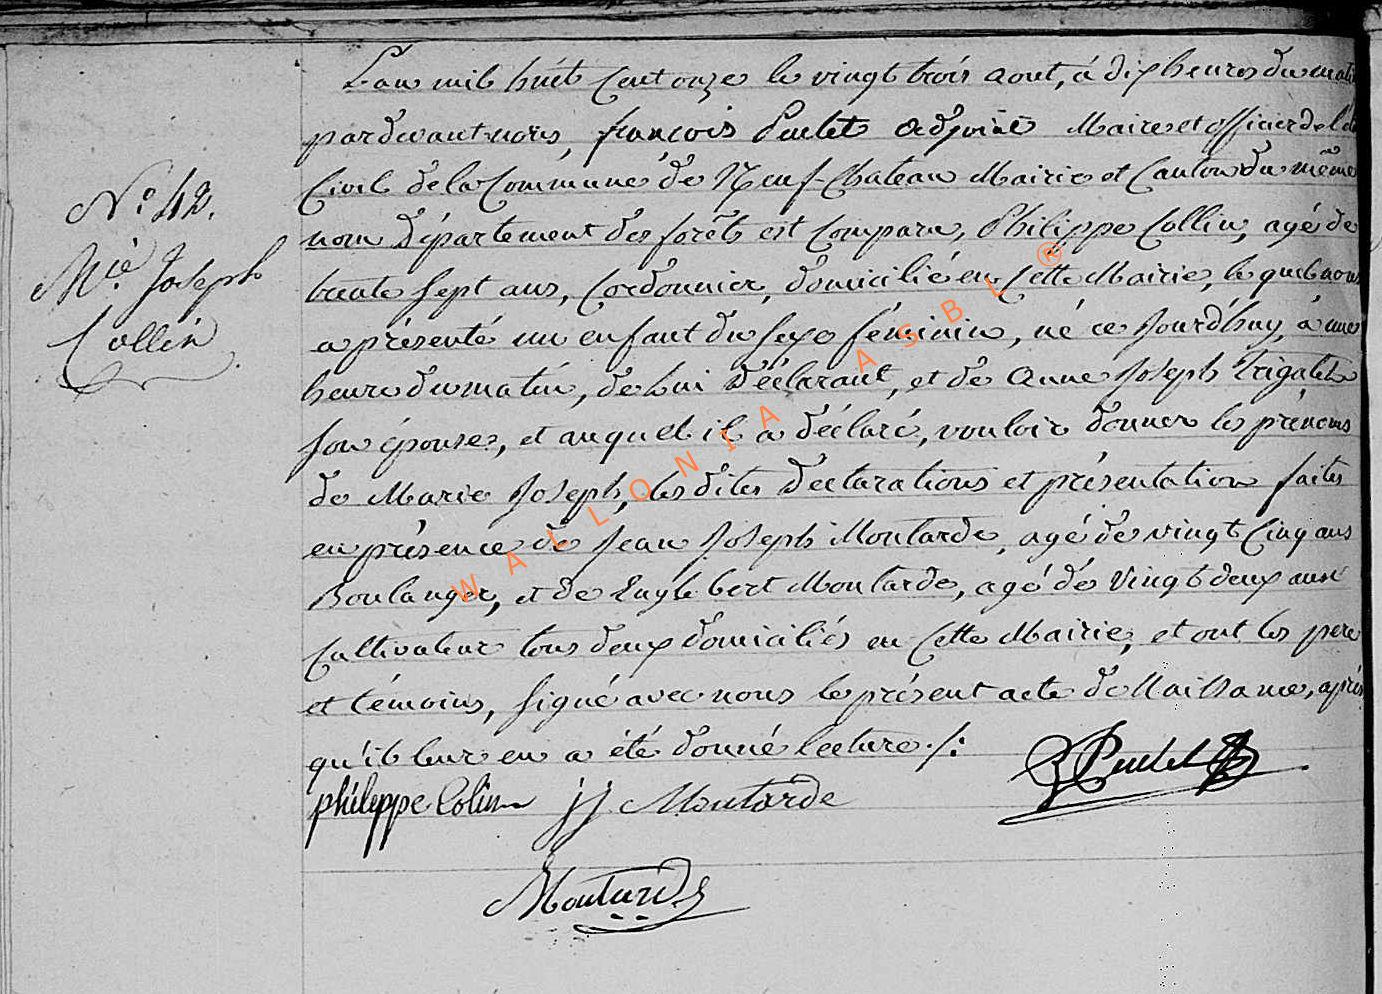 L'an mil huit cent onze le vingt trois aout, à dix heures du matin
pardevant nous, françois Poulet adjoint Maire et officier de l'état
Civil de la Commune de Neuf-Chateau Mairie et Canton du même
nom Département des forêts est comparu, Philippe Collin, agé de
trente sept ans, Cordonnier, domicilié en Cette Mairie, le quel nous
N.° 42.
Mie. Joseph
Collin
a présenté un enfant du sexe féminin, né ce Jourd'huy, à une
heure du matin, de lui Déclarant, et de Anne Joseph
son épouse, et auquel il a déclaré, vouloir donner les prénoms
de Marie Joseph, les dites Déclarations et présentation faites
en présence de Jean Joseph Moutarde, agé de vingt Cinq ans
Boulanger, et de Englebert Moutarde, agé de Vingt deux ans
Cultivateur tous deux domiciliés en Cette Mairie, et ont les pere
et témoins, signé avec nous le présent acte de Naissance, après
qu'il leur en a été donné lecture ./:
philippe Colin jj Moutarde
Moutarde
WALLONIA ASBL ®